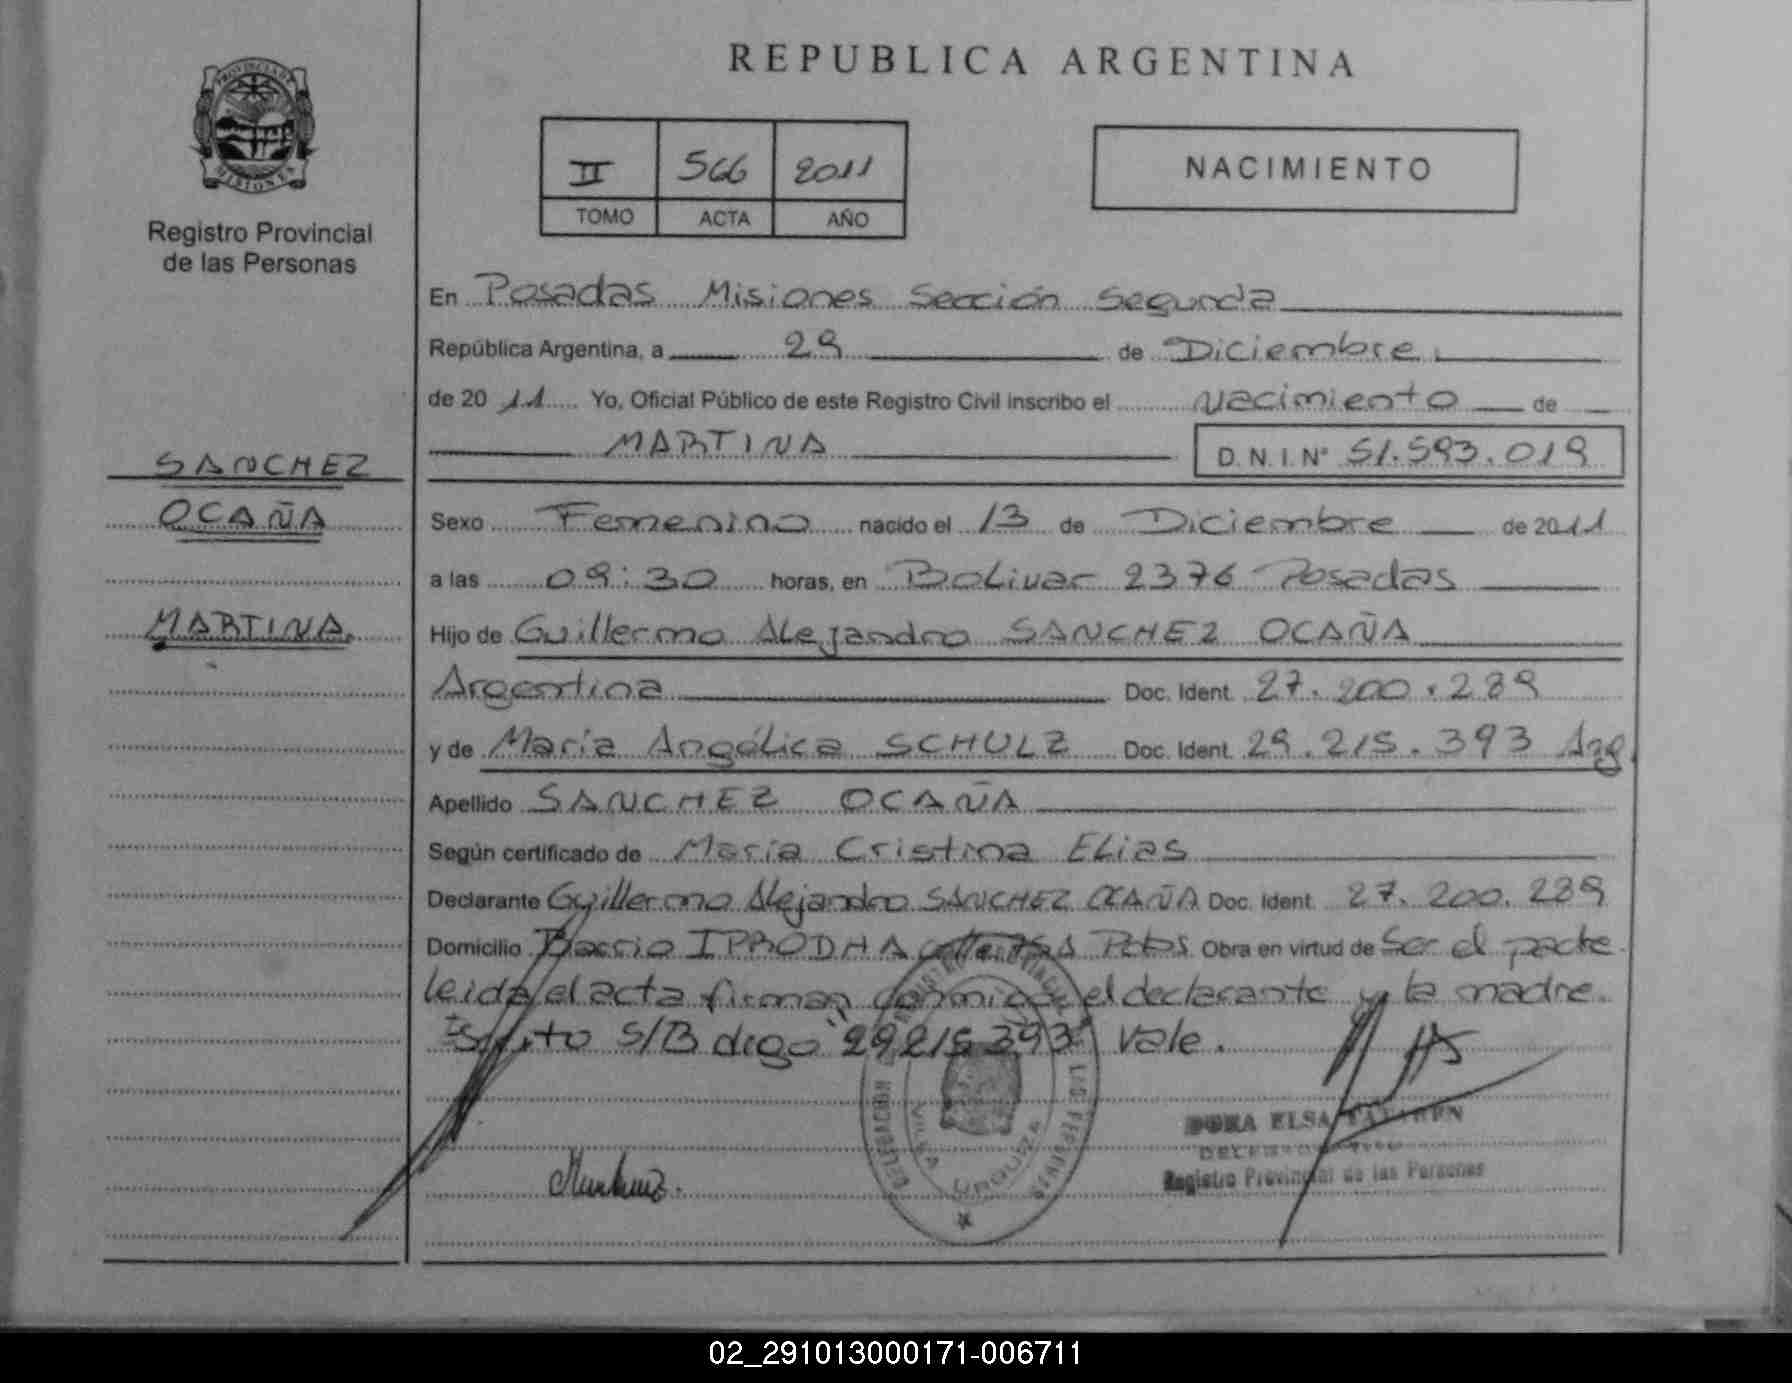 REPUBLICA ARGENTINA
PROVINCIA DE
MISIONES
Registro Provincial
de las Personas
II 566 2011
TOMO ACTA AÑO
NACIMIENTO
En Posadas Misiones Sección Segunda
República Argentina, a 29 de Diciembre
de 2011 Yo, Oficial Público de este Registro Civil inscribo el Nacimiento de
MARTINA D. N. I. N° 51.593.019
SANCHEZ
OCAÑA
MARTINA
Sexo Femenino nacido el 13 de Diciembre de 2011
a las 09:30 horas, en Bolivar 2376 Posadas
Hijo de Guillermo Alejandro SANCHEZ OCAÑA
Argentina Doc. Ident. 27.200.289
y de María Angélica SCHULZ Doc. Ident. 29.215.393 Arg
Apellido SANCHEZ OCAÑA
Según certificado de María Cristina Elias
Declarante Guillermo Alejandro SANCHEZ OCAÑA Doc. Ident. 27.200.289
Domicilio Barrio IPRODHA Pdas Obra en virtud de Ser el padre
leida el acta firman conmigo el declarante y la madre.
Escrito S/B digo "29215393" Vale.
DORA ELSA
Registro Provincial de las Personas
02_291013000171-006711